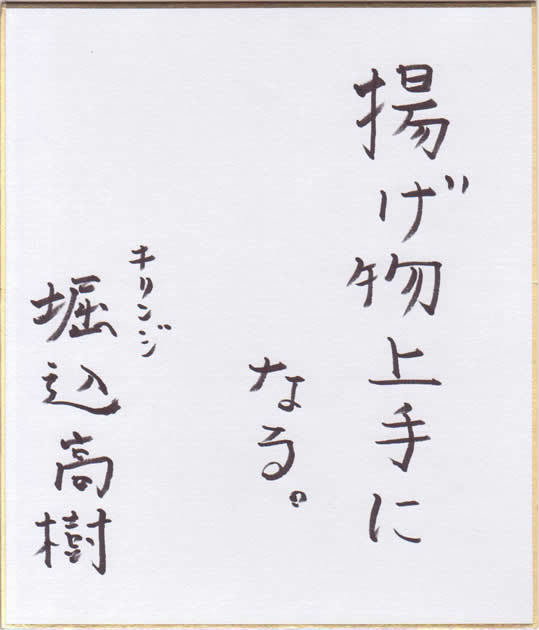 揚げ物上手に
なる。
キリンジ
堀込高樹